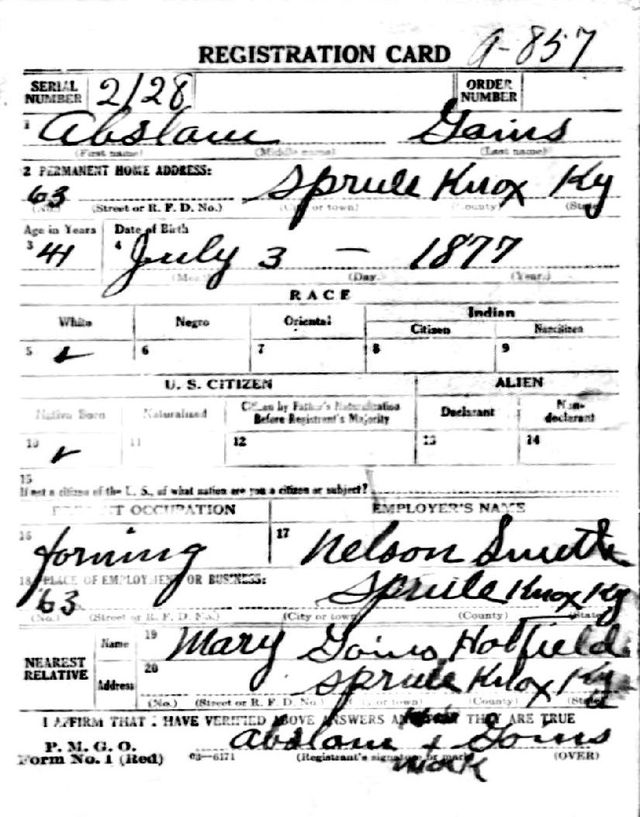 REGISTRATION CARD A-857
SERIAL NUMBER 2128 ORDER NUMBER
1 Abslam Gains
(First name) (Middle name) (Last name)
2 PERMANENT HOME ADDRESS:
63 Sprule Knox Ky
(No.) (Street or R. F. D. No.) (City or town) (County) (State)
Age in Years Date of Birth
3 41 4 July 3 - 1877
(Month) (Day) (Year)
RACE
White Negro Oriental Indian
Citizen Noncitizen
5 ✓ 6 7 8 9
U. S. CITIZEN ALIEN
Native Born Naturalized Citizen by Father's Naturalization Before Registrant's Majority Declarant Non-declarant
10 ✓ 11 12 13 14
15
If not a citizen of the U. S., of what nation are you a citizen or subject?
PRESENT OCCUPATION EMPLOYER'S NAME
16 forming 17 Nelson Smith
18 PLACE OF EMPLOYMENT OR BUSINESS:
63 Sprule Knox Ky
(No.) (Street or R. F. D. No.) (City or town) (County) (State)
NEAREST RELATIVE Name 19 Mary Gains Hatfield
Address 20 Sprule Knox Ky
(No.) (Street or R. F. D. No.) (City or town) (County) (State)
I AFFIRM THAT I HAVE VERIFIED ABOVE ANSWERS AND THAT THEY ARE TRUE
Abslam + Gains
P. M. G. O.
Form No. 1 (Red) 03-6171 (Registrant's signature or mark) (OVER)
mark